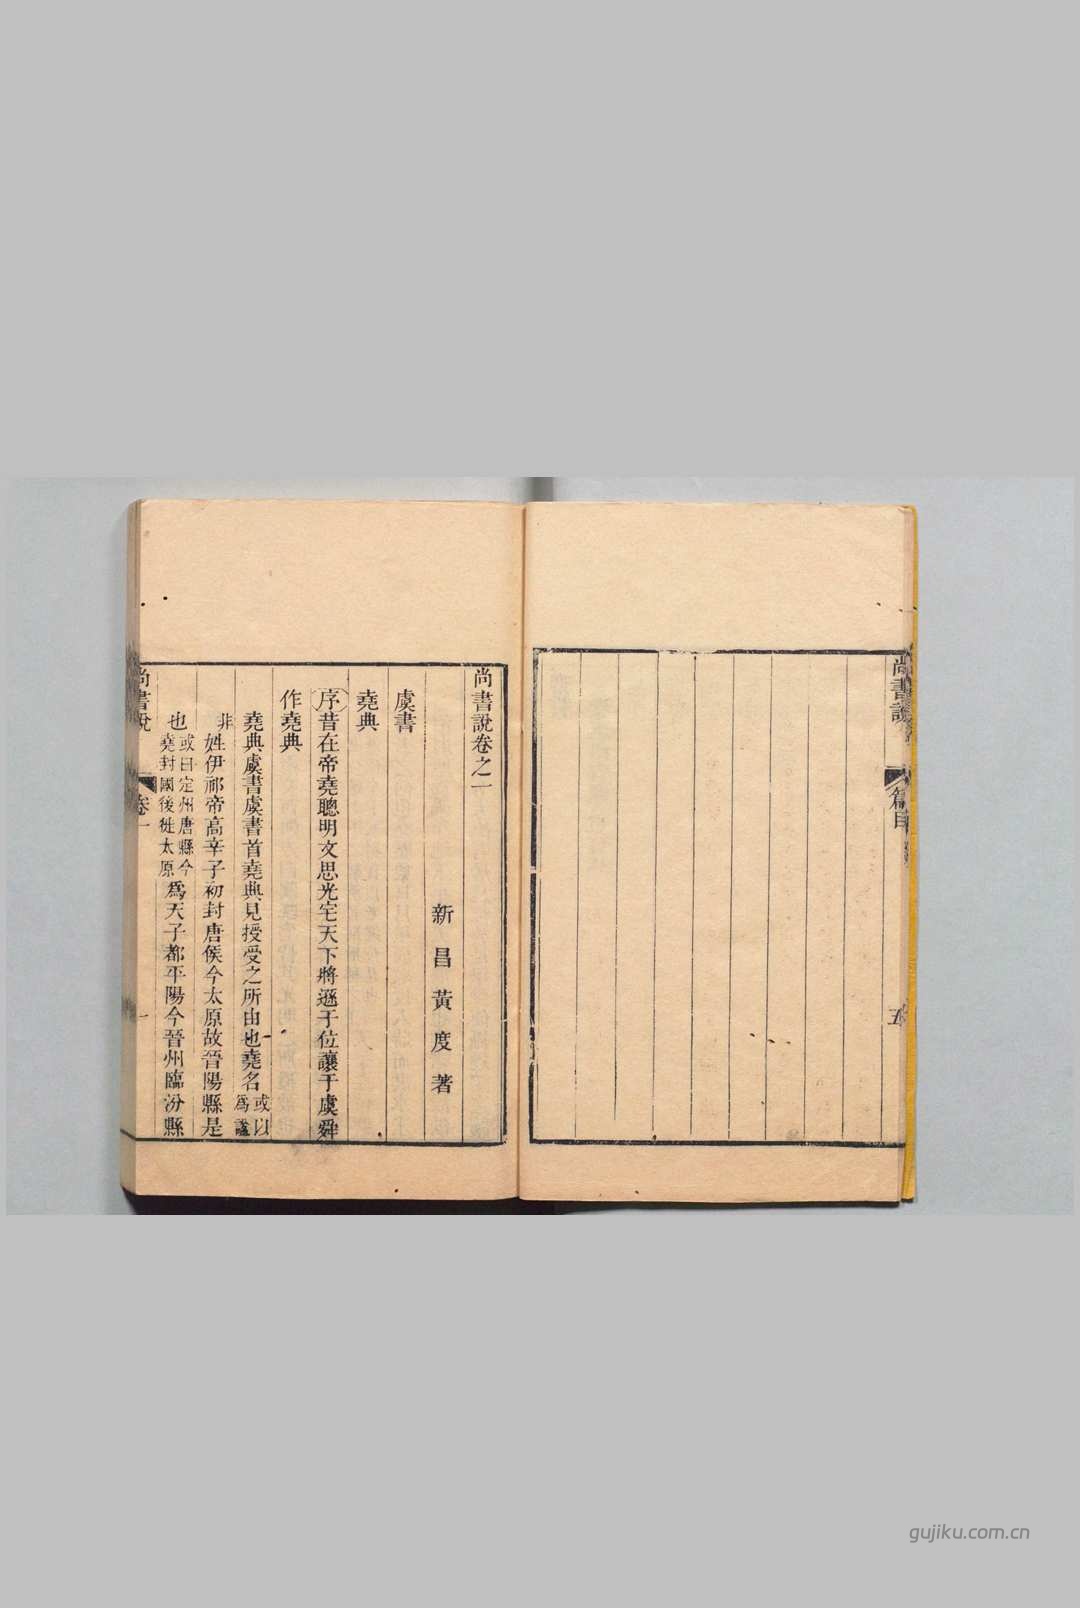 尚書說
篇目
五
尚書說卷之一
新昌黃度著
虞書
堯典
序昔在帝堯聰明文思光宅天下將遜于位讓于虞舜
作堯典
堯典虞書虞書首堯典見授受之所由也堯名或以爲謚
非姓伊祁帝高辛子初封唐侯今太原故晉陽縣是
也或曰定州唐縣今堯封國後徙太原爲天子都平陽今晉州臨汾縣
尚書說
卷一
一
gujiku.com.cn